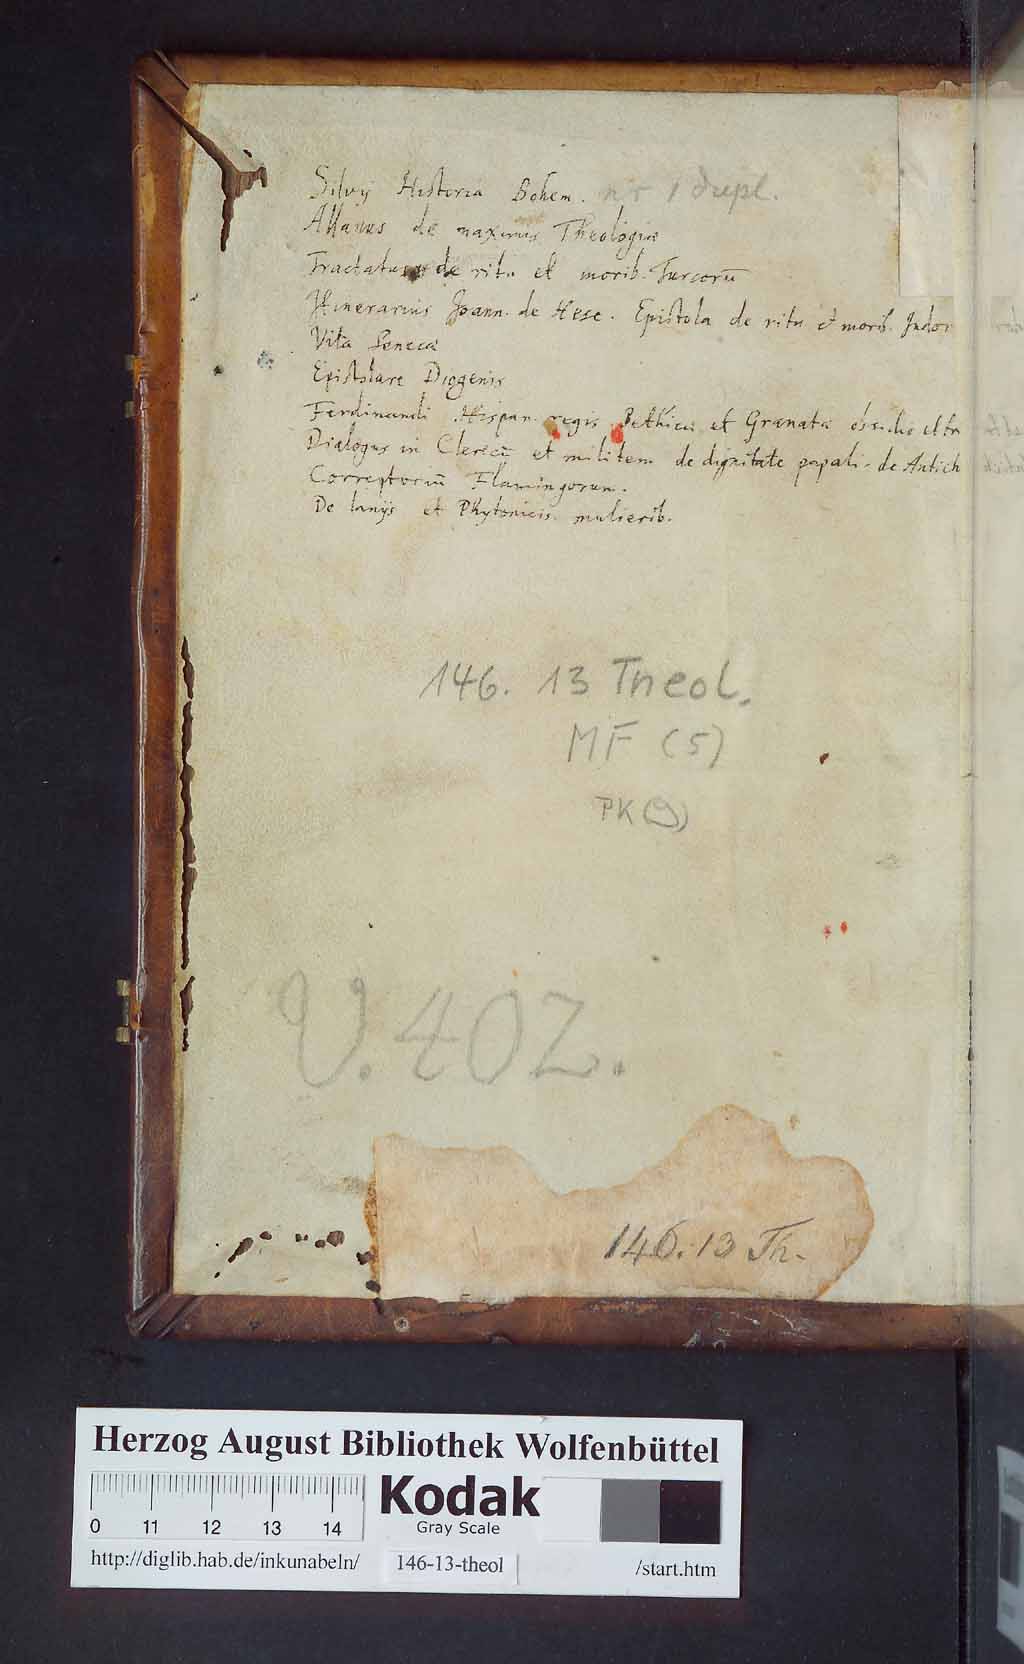 Silvij Historia Bohem. nr 1 dupl.
Allanus de maximis Theologiæ
Tractatus de ritu et morib. Turcorū
Itinerarius Joann. de Hese. Epistola de ritu et morib. Indor
Vita Senecæ
Epistolare Diogenis
Ferdinandi Hispan. regis Bethicæ et Granatæ obsidio et
Dialogus in Clericū et militem de dignitate papali. de Antich
Correptoriū Flamingorum.
De lanijs et Phytonicis mulierib.
146. 13 Theol.
MF (5)
PK (9)
V. 402.
146. 13 Th.
Herzog August Bibliothek Wolfenbüttel
Kodak
Gray Scale
0 11 12 13 14
http://diglib.hab.de/inkunabeln/ 146-13-theol /start.htm